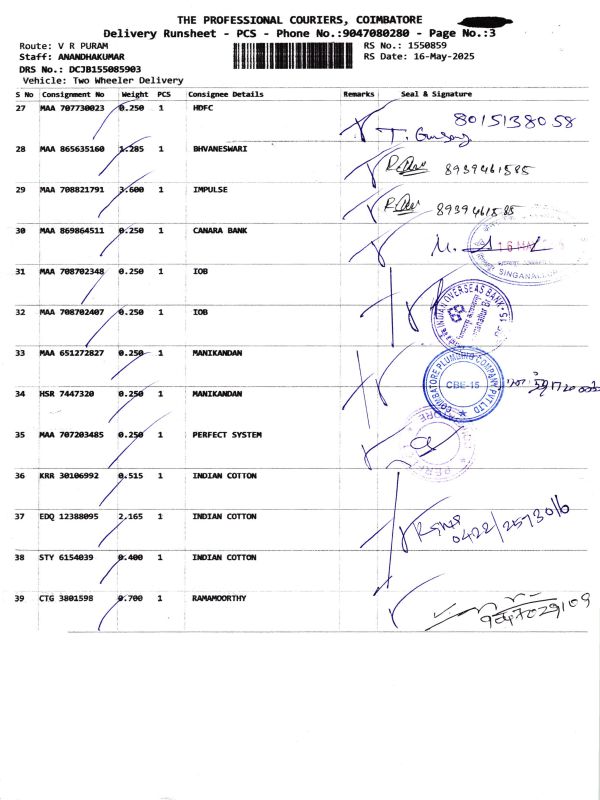 THE PROFESSIONAL COURIERS, COIMBATORE
Delivery Runsheet - PCS - Phone No.:9047080280 - Page No.:3
Route: V R PURAM RS No.: 1550859
Staff: ANANDHAKUMAR RS Date: 16-May-2025
DRS No.: DCJB155085903
Vehicle: Two Wheeler Delivery
S No Consignment No Weight PCS Consignee Details Remarks Seal & Signature
27 MAA 707730023 0.250 1 HDFC 8015138058
28 MAA 865635160 1.285 1 BHVANESWARI 8939461585
29 MAA 708821791 3.600 1 IMPULSE 8939461585
30 MAA 869864511 0.250 1 CANARA BANK 16 MA
SINGANALLUR
31 MAA 708702348 0.250 1 IOB
INDIAN OVERSEAS BANK
32 MAA 708702407 0.250 1 IOB
33 MAA 651272827 0.250 1 MANIKANDAN
COIMBATORE PLUMBING COMPANY PVT LTD
CBE-15
34 HSR 7447320 0.250 1 MANIKANDAN
35 MAA 707203485 0.250 1 PERFECT SYSTEM
36 KRR 30106992 0.515 1 INDIAN COTTON
37 EDQ 12388095 2.165 1 INDIAN COTTON
0422/2573016
38 STY 6154039 0.400 1 INDIAN COTTON
39 CTG 3801598 0.700 1 RAMAMOORTHY
9047029109